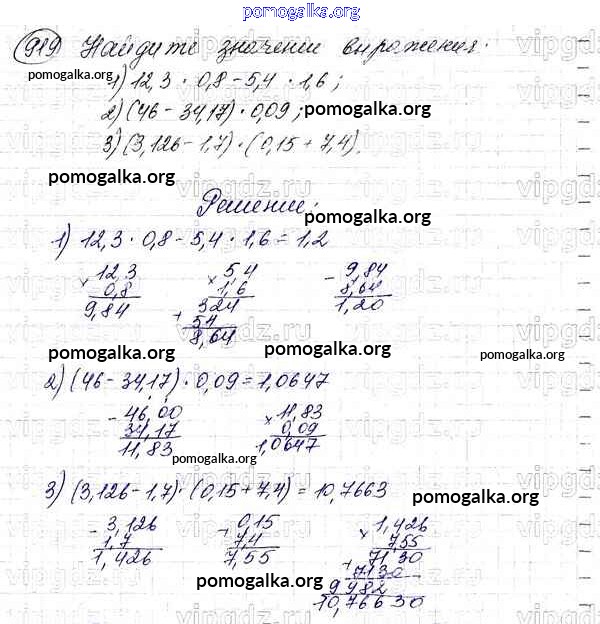 pomogalka.org
919 Найдите значении выражения.
1) 12,3 · 0,8 - 5,4 · 1,6;
pomogalka.org
2) (46 - 34,17) · 0,09; pomogalka.org
3) (3,126 - 1,7) · (0,15 + 7,4).
pomogalka.org
Решении:
pomogalka.org
1) 12,3 · 0,8 - 5,4 · 1,6 = 1,2
× 12,3 × 5,4 - 9,84
0,8 1,6 8,64
9,84 324 1,20
+ 54
8,64
pomogalka.org pomogalka.org pomogalka.org
2) (46 - 34,17) · 0,09 = 1,0647
- 46,00 × 11,83
34,17 0,09
11,83 1,0647
pomogalka.org
3) (3,126 - 1,7) · (0,15 + 7,4) = 10,7663
pomogalka.org
- 3,126 + 0,15 × 1,426
1,7 7,4 7,55
1,426 7,55 7130
+ 7130
pomogalka.org 9982
10,76630
pomogalka.org
vipgdz.ru